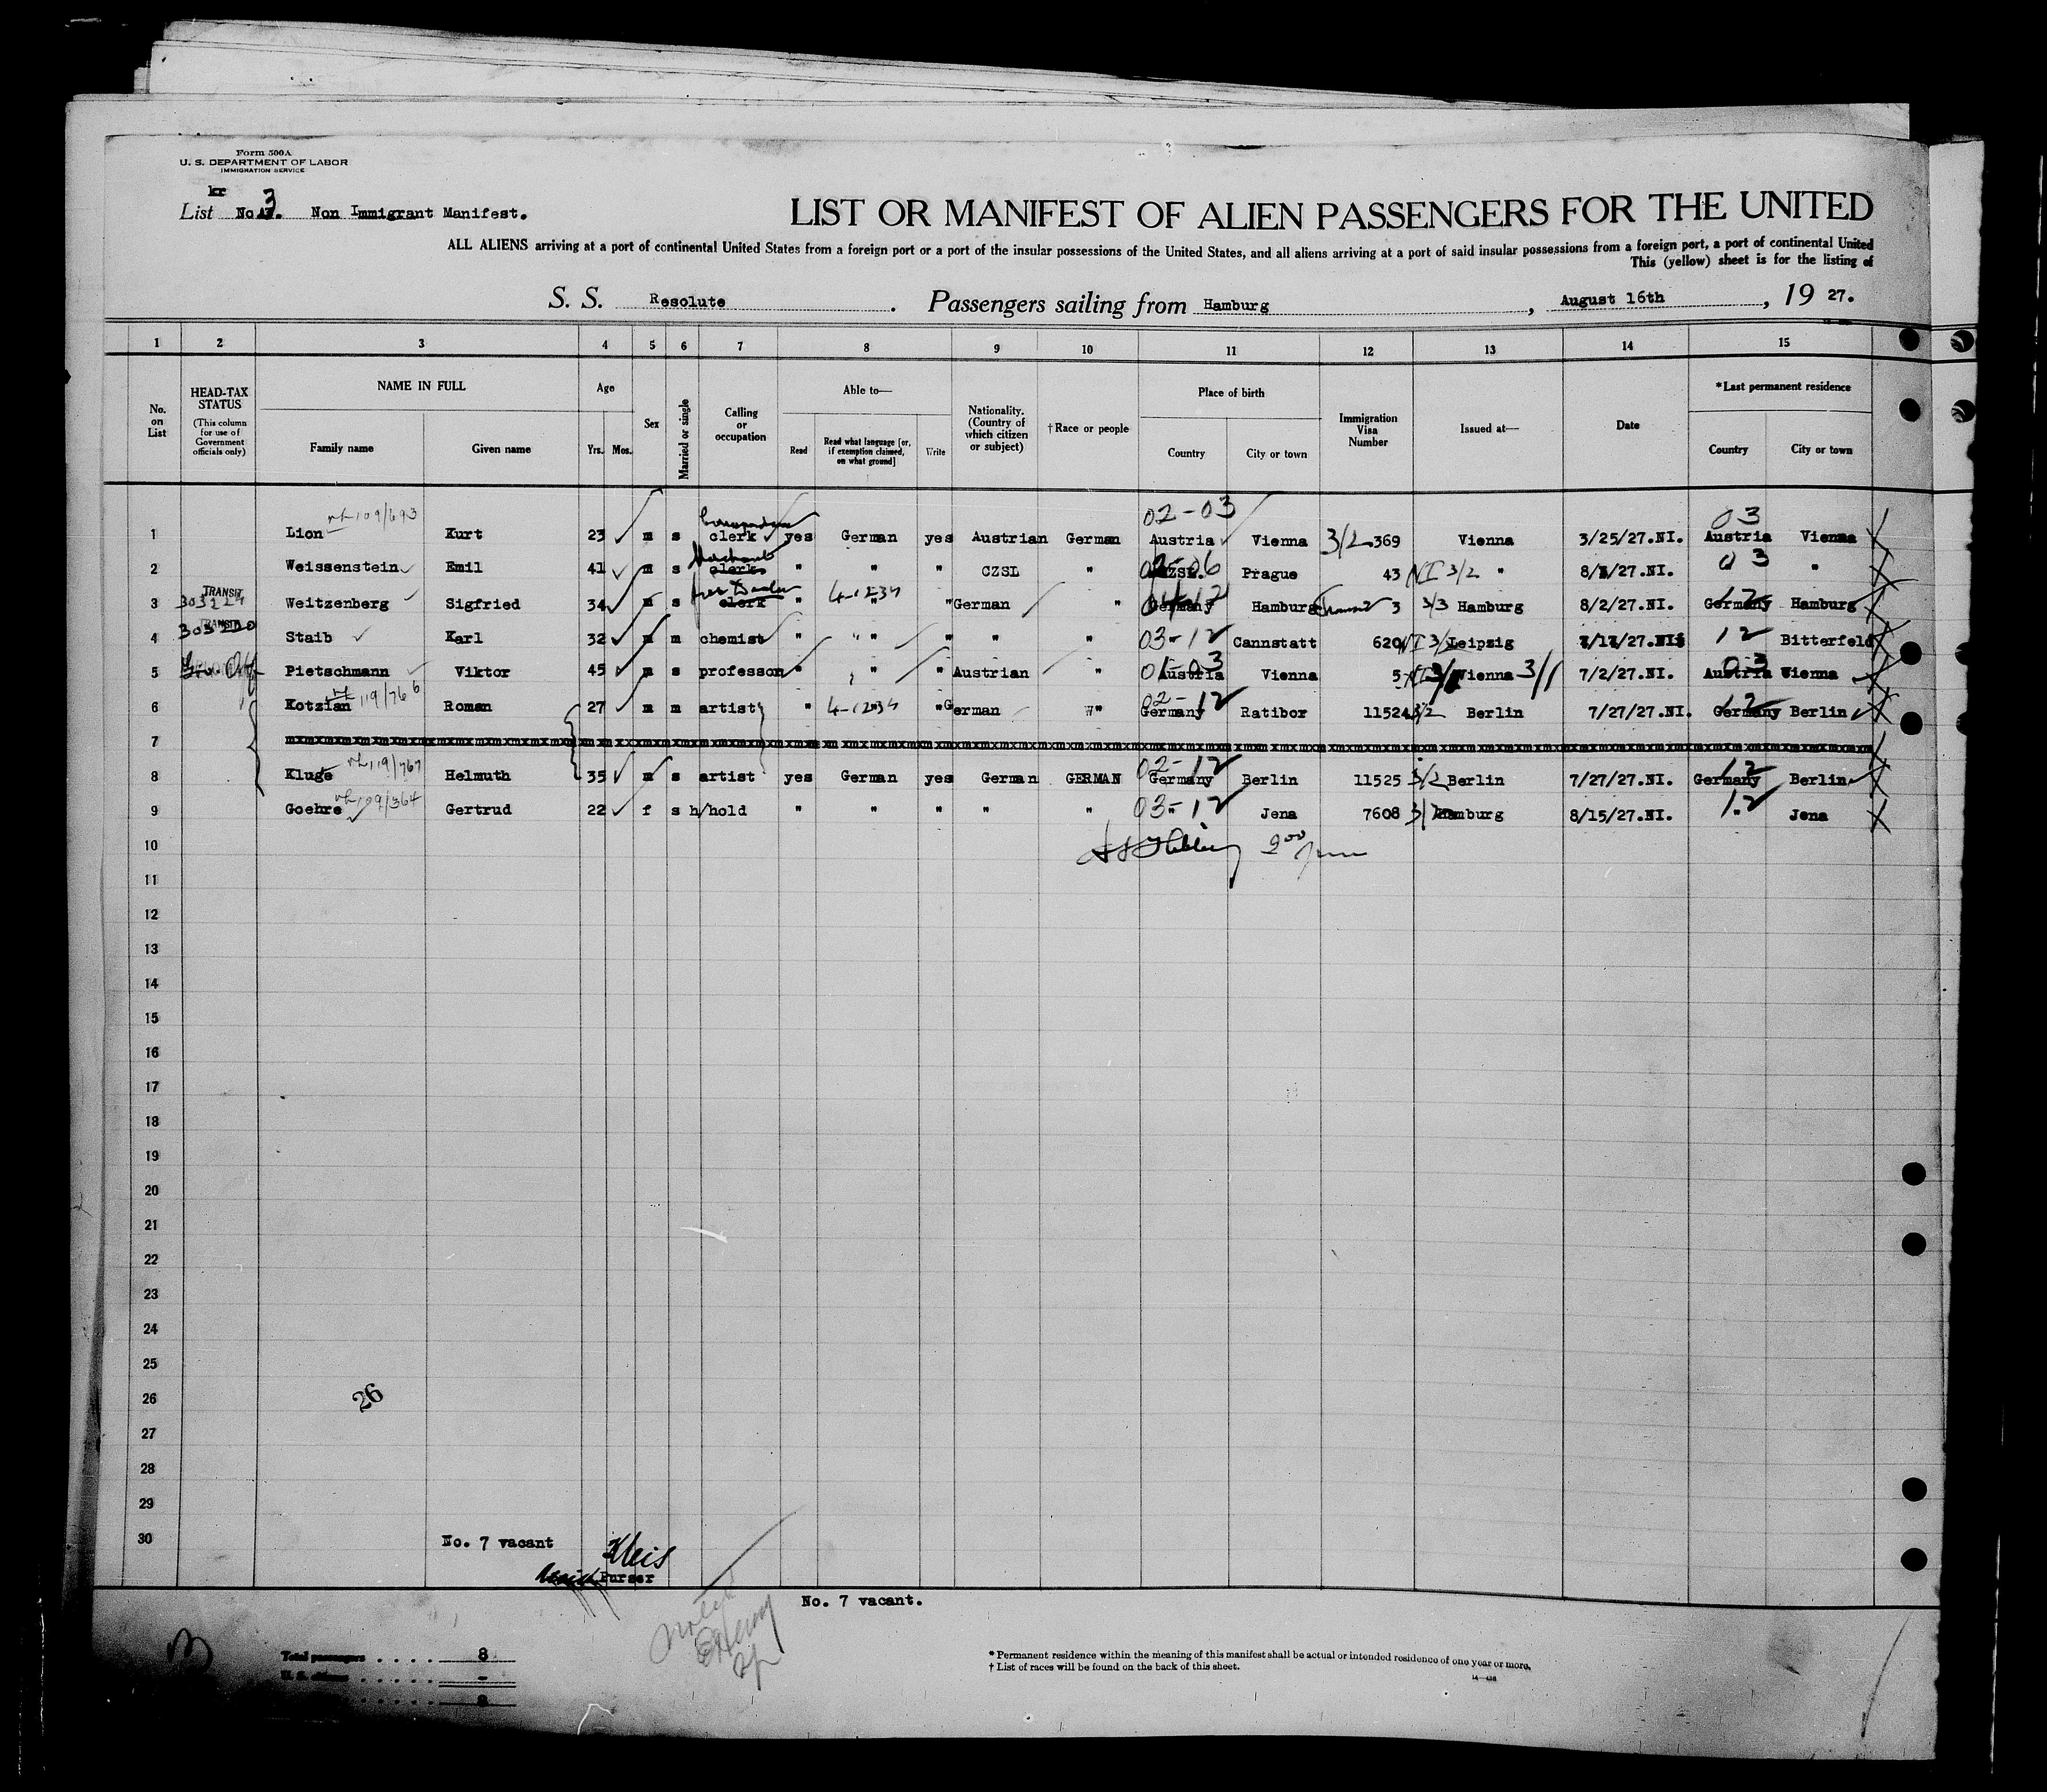 Form 500A
U. S. DEPARTMENT OF LABOR
IMMIGRATION SERVICE
kr 3
List No. Non Immigrant Manifest.
LIST OR MANIFEST OF ALIEN PASSENGERS FOR THE UNITED
ALL ALIENS arriving at a port of continental United States from a foreign port or a port of the insular possessions of the United States, and all aliens arriving at a port of said insular possessions from a foreign port, a port of continental United
This (yellow) sheet is for the listing of
S. S. Resolute. Passengers sailing from Hamburg, August 16th, 19 27.
1 2 3 4 5 6 7 8 9 10 11 12 13 14 15
No. on List
HEAD-TAX STATUS (This column for use of Government officials only)
NAME IN FULL
Family name
Given name
Age
Yrs. Mos.
Sex
Married or single
Calling or occupation
Able to—
Read
Read what language [or, if exemption claimed, on what ground]
Write
Nationality. (Country of which citizen or subject)
†Race or people
Place of birth
Country
City or town
Immigration Visa Number
Issued at—
Date
*Last permanent residence
Country
City or town
02-03 03
1 Lion 109/693 Kurt 23 m s clerk yes German yes Austrian German Austria Vienna 3/2 369 Vienna 3/25/27.NI. Austria Vienna
2 Weissenstein Emil 41 m s Merchant clerk " " " CZSL " 06 CZSL. Prague 43 NI 3/2 " 8/ /27.NI. 03 "
TRANSIT
3 Weitzenberg Sigfried 34 m s clerk " 4-1234 " " German " Germany 12 Hamburg 3 3/3 Hamburg 8/2/27.NI. Germany 12 Hamburg
TRANSIT
4 303230 Staib Karl 32 m m chemist " " " " " " 03-12 Cannstatt 620 NI 3/ Leipzig /27.NI 12 Bitterfeld
5 Pietschmann Viktor 45 m s professor " " " Austrian " 01-03 Austria Vienna 5 NI 3/ Vienna 3/1 7/2/27.NI. Austria 03 Vienna
6 Kotzian 119/766 Roman 27 m m artist " 4-1234 " " German " 02-12 Germany Ratibor 11524 3/2 Berlin 7/27/27.NI. Germany 12 Berlin
7
8 Kluge 119/767 Helmuth 35 m s artist yes German yes German GERMAN 02-12 Germany Berlin 11525 3/2 Berlin 7/27/27.NI. 12 Germany Berlin
9 Goehre 109/364 Gertrud 22 f s h/hold " " " " " 03-12 " Jena 7608 3/ Hamburg 8/15/27.NI. 12 " Jena
10
11
12
13
14
15
16
17
18
19
20
21
22
23
24
25
26
26
27
28
29
30
No. 7 vacant
Kleis
Purser
No. 7 vacant.
Total passengers . . . . 8
U. S. citizens . . . . . -
. . . . . 8
* Permanent residence within the meaning of this manifest shall be actual or intended residence of one year or more.
† List of races will be found on the back of this sheet.